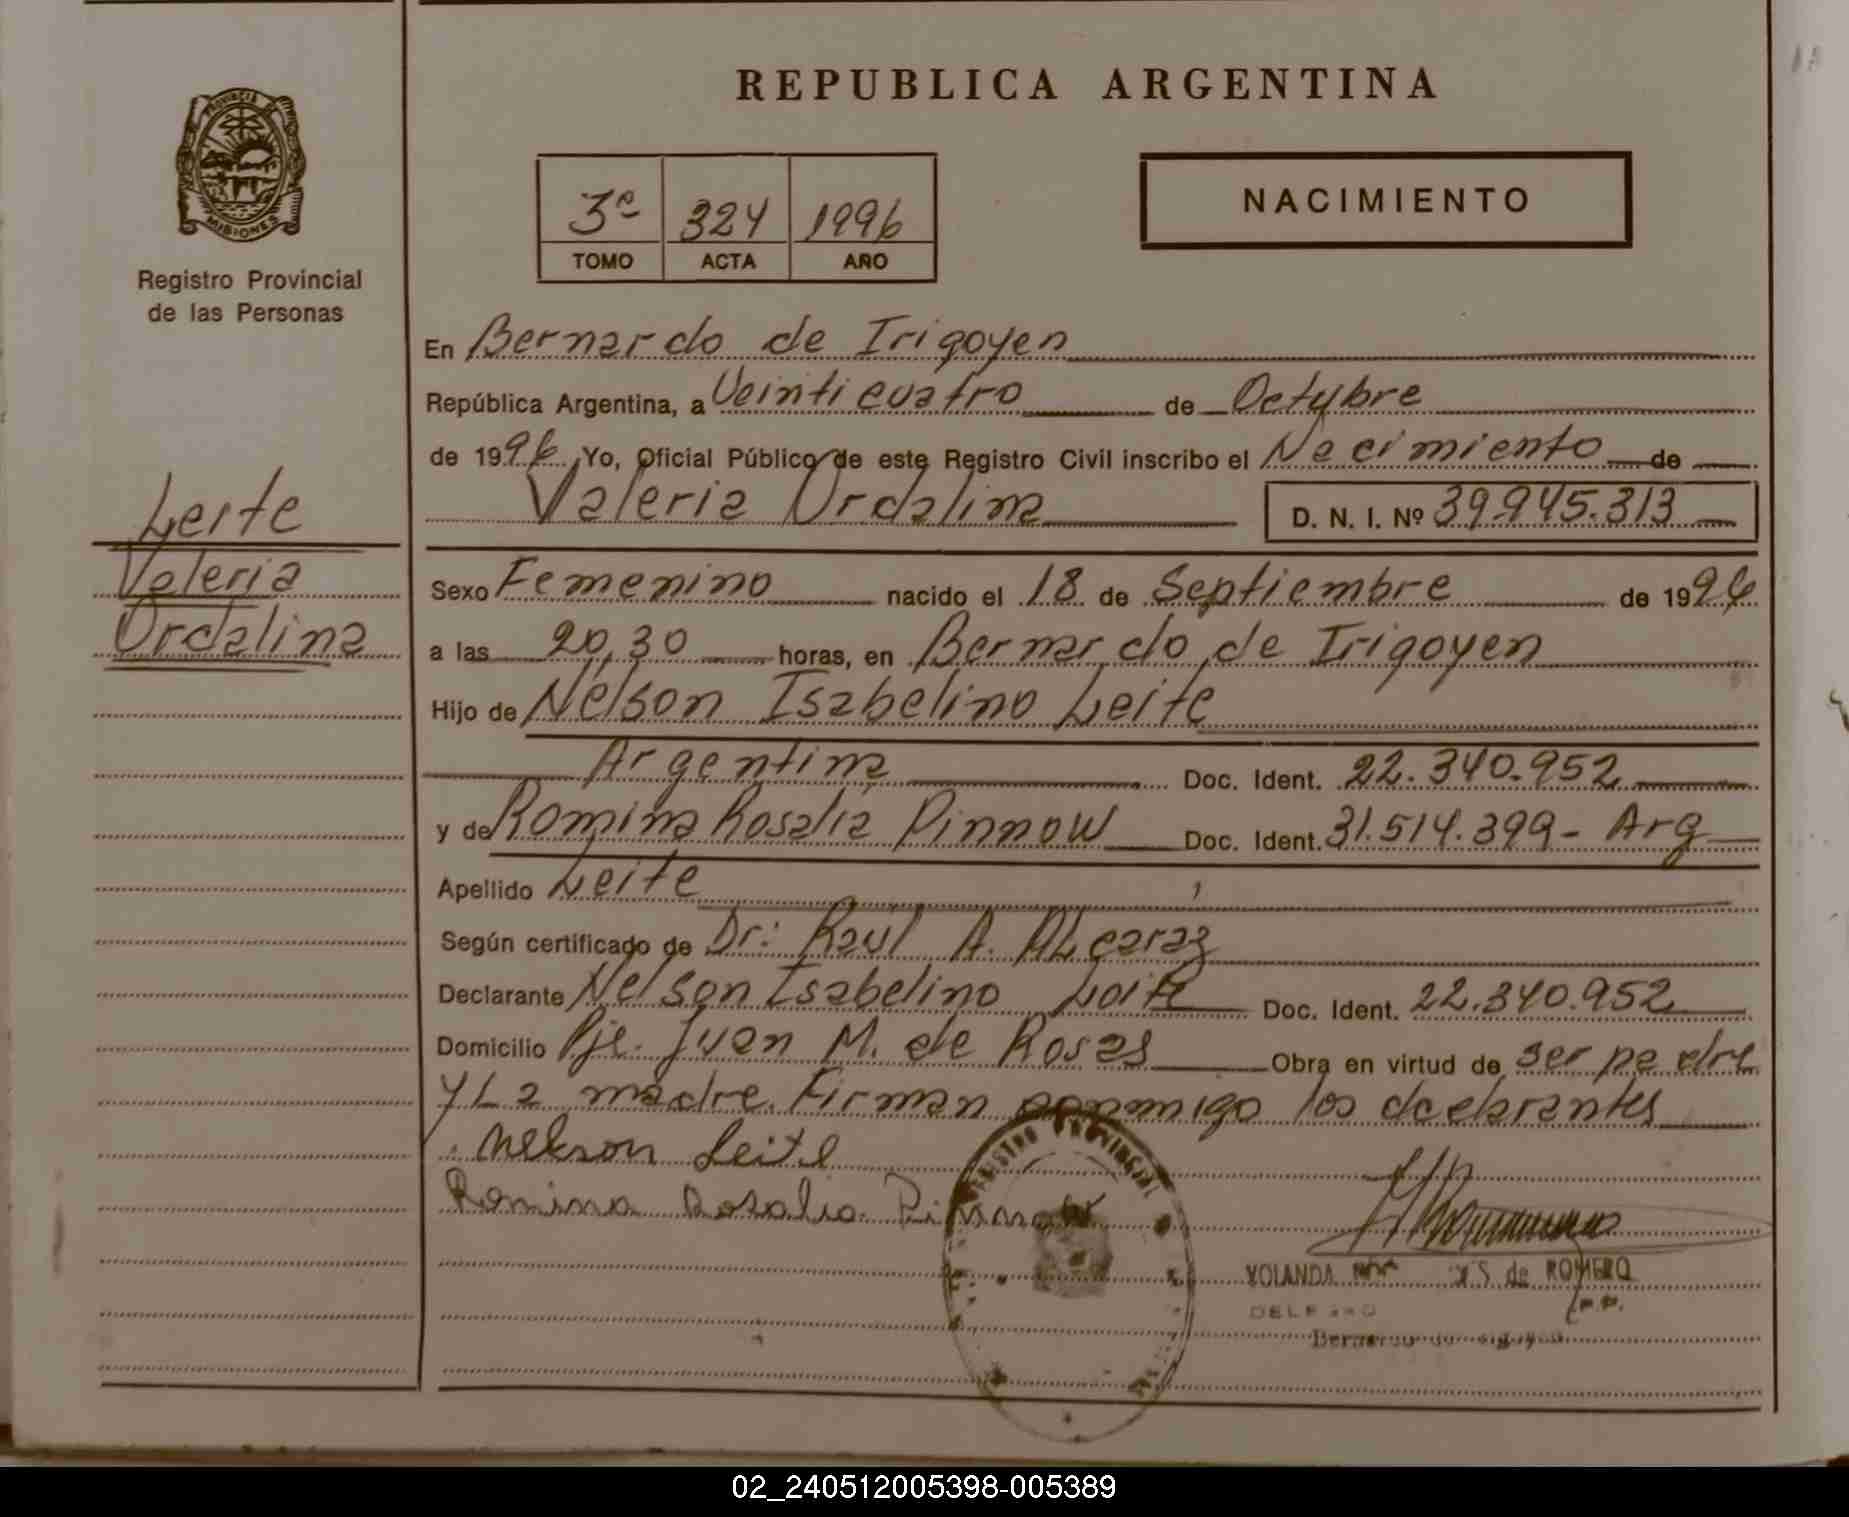 REPUBLICA ARGENTINA
PROVINCIA DE
MISIONES
Registro Provincial
de las Personas
3º 324 1996
TOMO ACTA AÑO
NACIMIENTO
Leite
Valeria
Ordalina
En Bernardo de Irigoyen
República Argentina, a Veinticuatro de Octubre
de 1996 Yo, Oficial Público de este Registro Civil inscribo el Nacimiento de
Valeria Ordalina D. N. I. Nº 39.945.313
Sexo Femenino nacido el 18 de Septiembre de 1996
a las 20,30 horas, en Bernardo de Irigoyen
Hijo de Nelson Isabelino Leite
Argentina Doc. Ident. 22.340.952
y de Romina Rosalia Pinnow Doc. Ident. 31.514.399 - Arg
Apellido Leite
Según certificado de Dr: Raúl A. ALcaraz
Declarante Nelson Isabelino Leite Doc. Ident. 22.340.952
Domicilio Pje. Juan M. de Rosas Obra en virtud de ser padre
y La madre. Firman conmigo los declarantes
Nelson Leite
Romina Rosalia Pinnow
REGISTRO PROVINCIAL
YOLANDA de ROMERO
Bernardo de Irigoyen
02_240512005398-005389